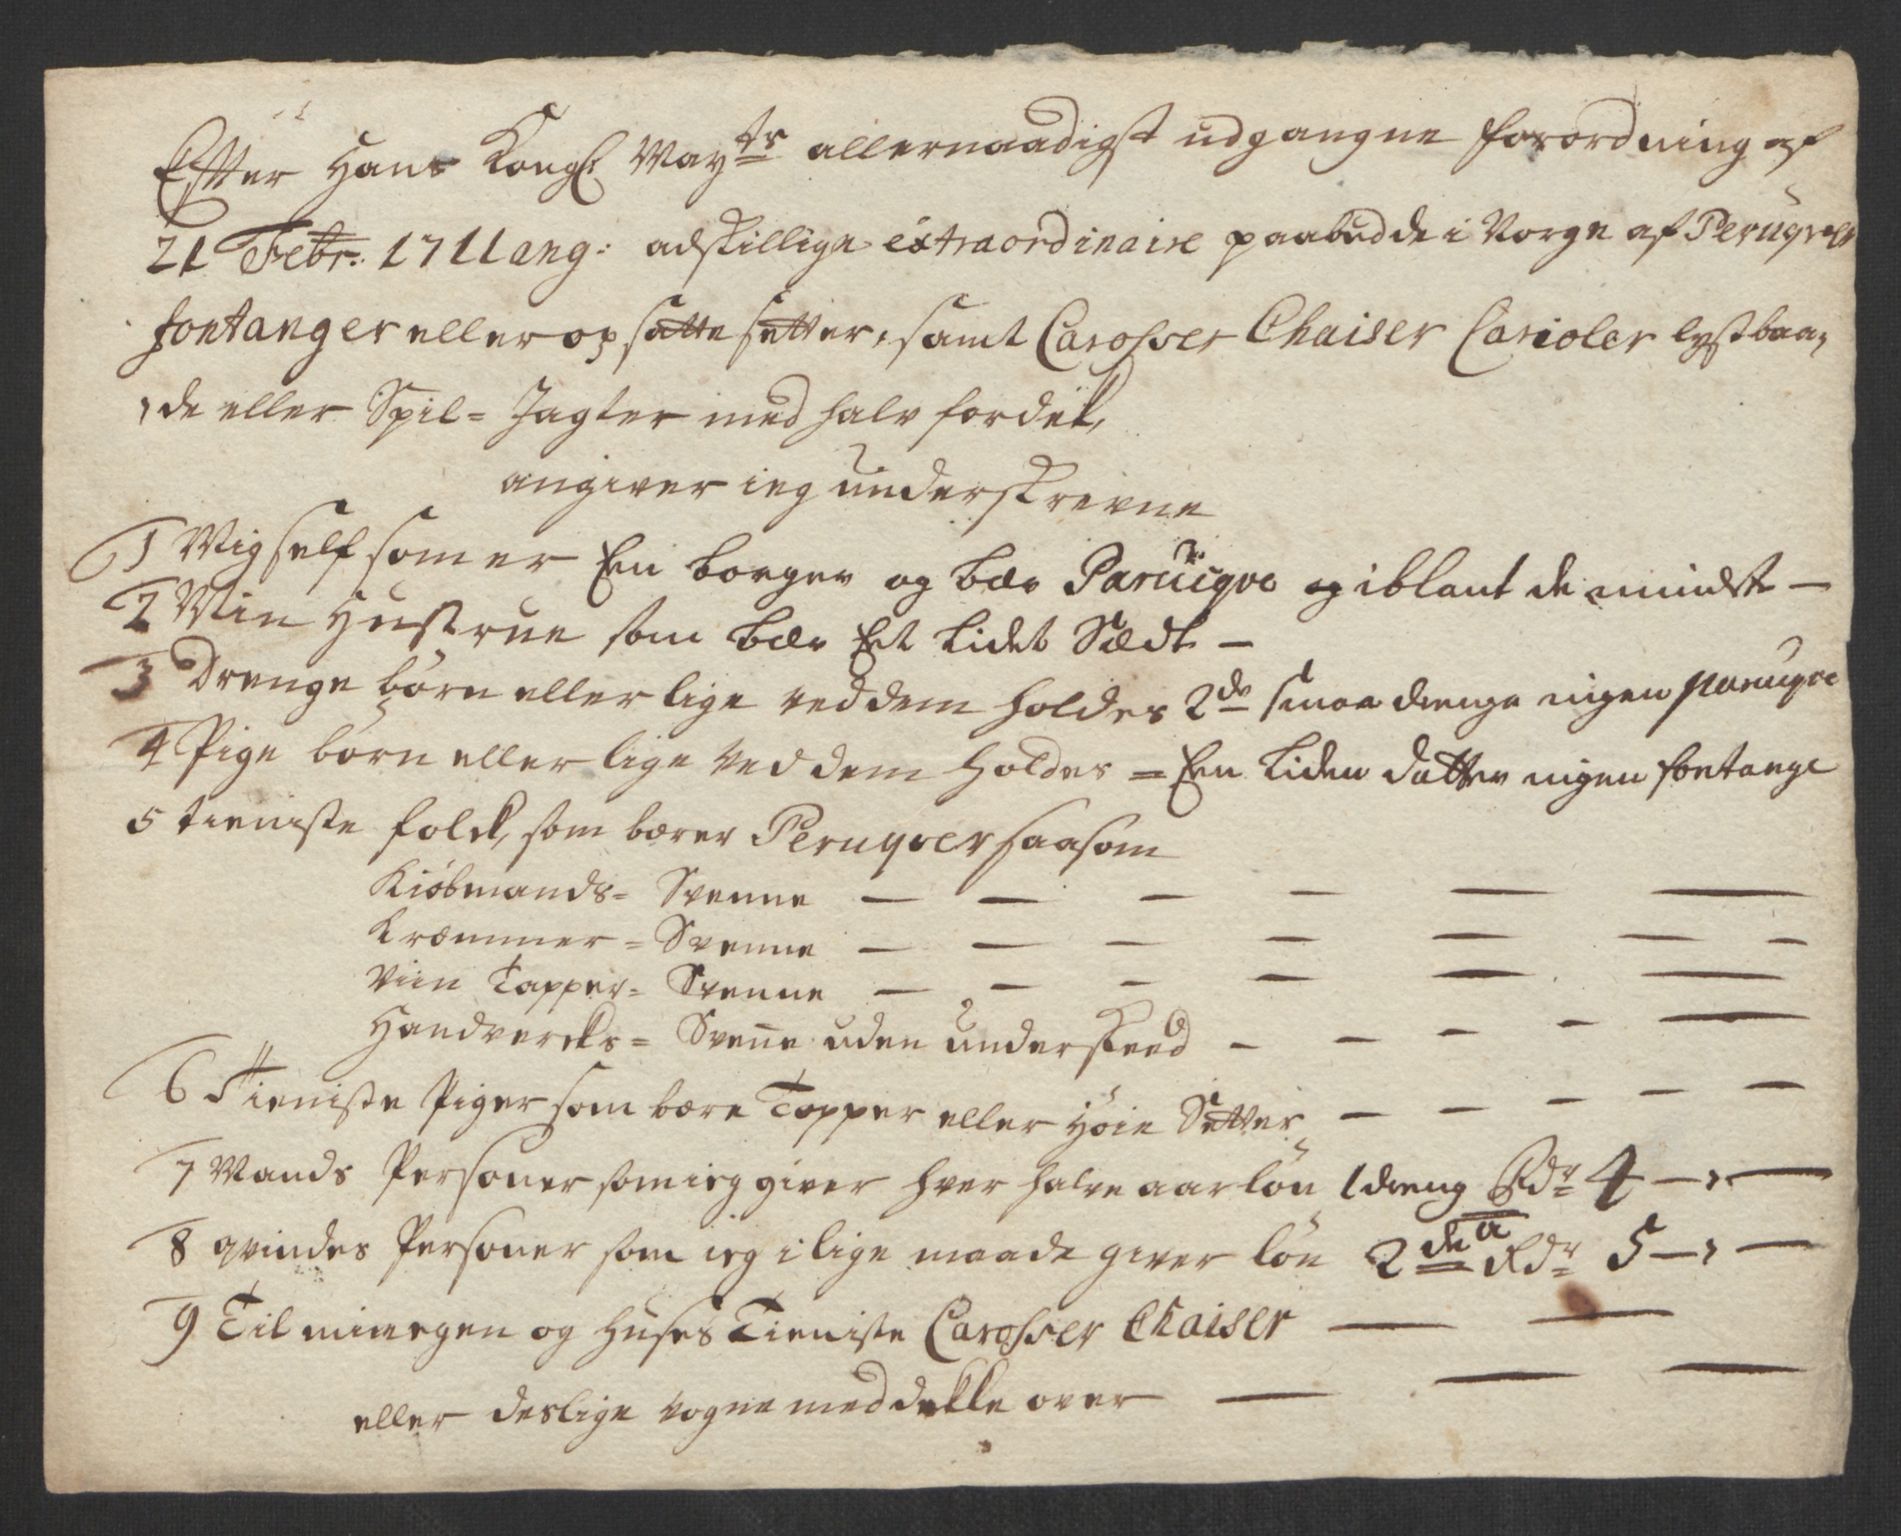 Efter Hans Kongl. May<sup>tts</sup> allernaadigst udgangne forordning af
21 Febr: 1711 ang: adskillige extraordinaire paabudde i Norge af Peruqver
fontanger eller opsatte setter, samt Carosser Chaiser Carioler lystbaa-
de eller Spil= Jagter med halv fordek,
angiver ieg underskrevne
1 Mig self som er En borger og bær Parucqve og iblant de mindste —
2 Min Hustrue som bær Et lidet Sædt —
3 Drenge börn eller lige ved dem holdes 2de smaa drenge ingen parucqve
4 Pige börn eller lige ved dem holdes = En liden datter ingen fontange
5 tieniste folck, som bærer Peruqver saasom
Kiöbmands= Svenne — — — — — —
Kræmmer= Svenne — — — — — — —
Viin Tapper= Svenne — — — — — —
Handvercks= Svene uden underskeed — — — — —
6 Tieniste Piger som bære Topper eller Höie Setter — — — — —
7 Mands Personer som ieg giver hver halve aar lön 1 dreng Rdr 4 —,—
8 qvindes Personer som ieg i lige maade giver lön 2de a Rdr 5 —,—
9 Til min egen og huses Tieniste Carosser Chaiser — —
eller deslige vogne med dekke over — — —